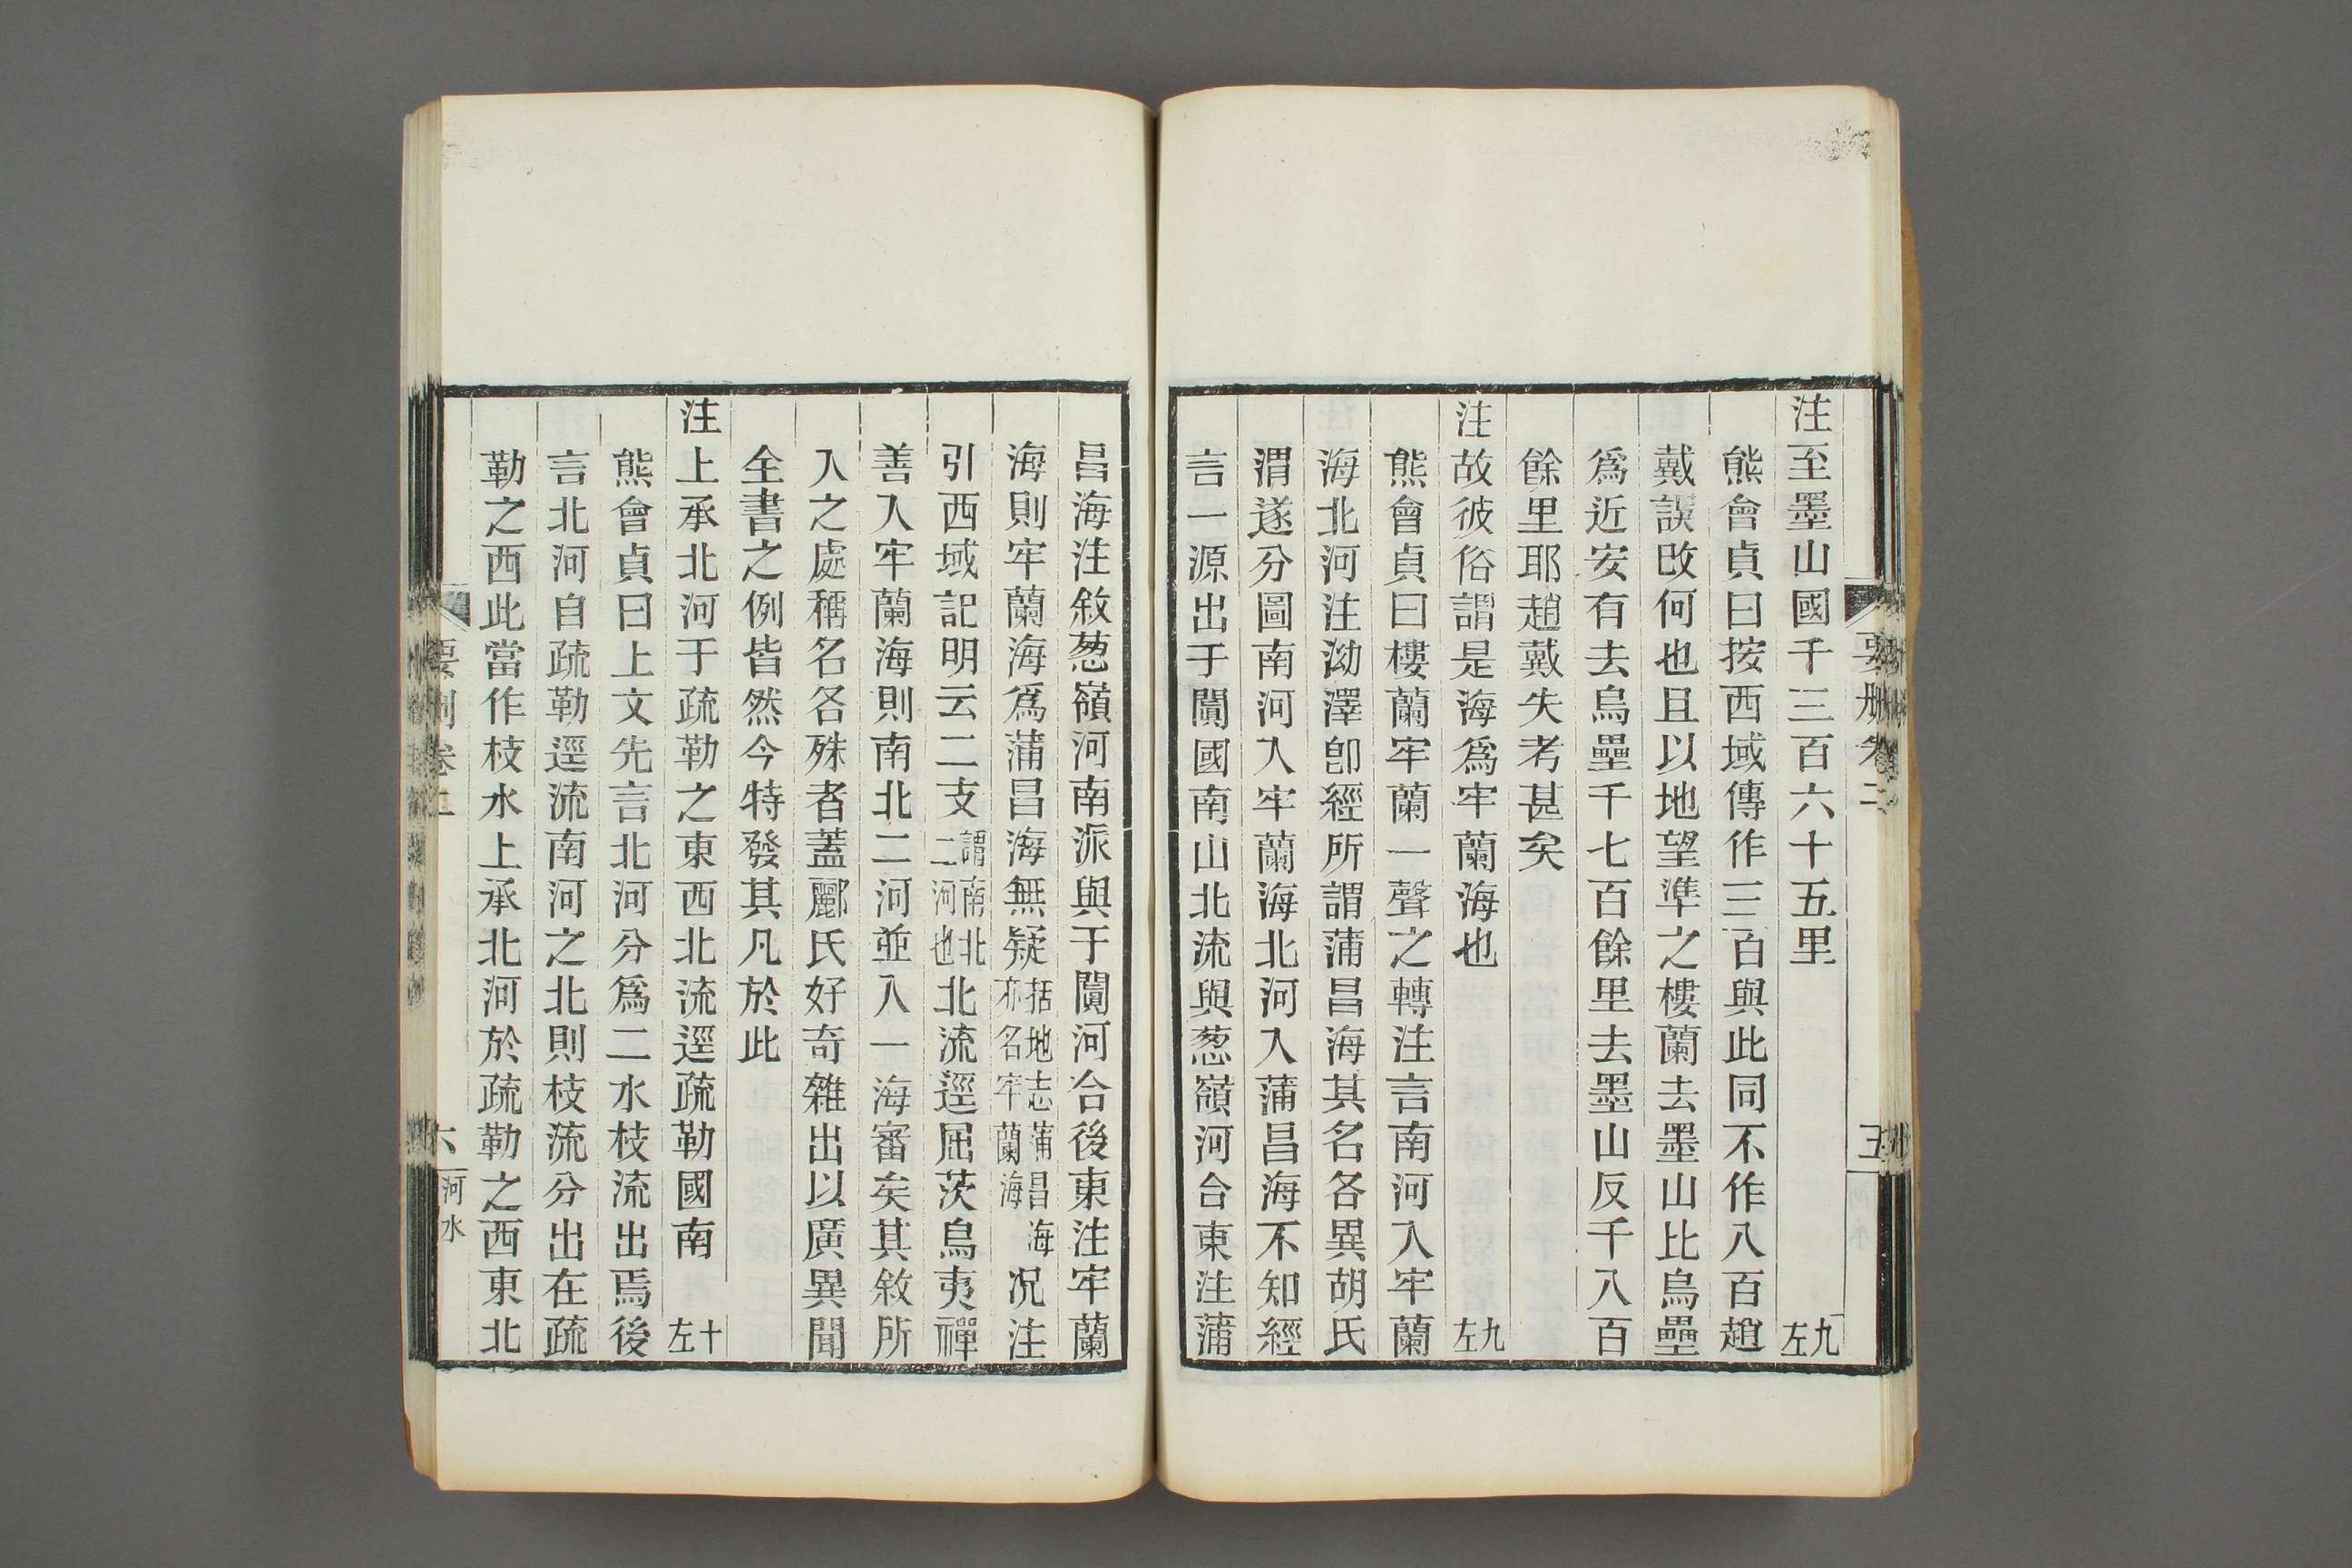 注至墨山國千三百六十五里 九左
熊會貞曰按西域傳作三百與此同不作八百趙
戴誤改何也且以地望準之樓蘭去墨山比烏壘
爲近安有去烏壘千七百餘里去墨山反千八百
餘里耶趙戴失考甚矣
注故彼俗謂是海爲牢蘭海也 九左
熊會貞曰樓蘭牢蘭一聲之轉注言南河入牢蘭
海北河注泑澤卽經所謂蒲昌海其名各異胡氏
渭遂分圖南河入牢蘭海北河入蒲昌海不知經
言一源出于闐國南山北流與葱嶺河合東注蒲
要刪卷二
五
昌海注敘葱嶺河南派與于闐河合後東注牢蘭
海則牢蘭海爲蒲昌海無疑括地志蒲昌海亦名牢蘭海况注
引西域記明云二支謂南北二河也北流逕屈茨烏夷禪
善入牢蘭海則南北二河並入一海審矣其敘所
入之處稱名各殊者蓋酈氏好奇雜出以廣異聞
全書之例皆然今特發其凡於此
注上承北河于疏勒之東西北流逕疏勒國南 十左
熊會貞曰上文先言北河分爲二水枝流出焉後
言北河自疏勒逕流南河之北則枝流分出在疏
勒之西此當作枝水上承北河於疏勒之西東北
要刪卷二
六
河水